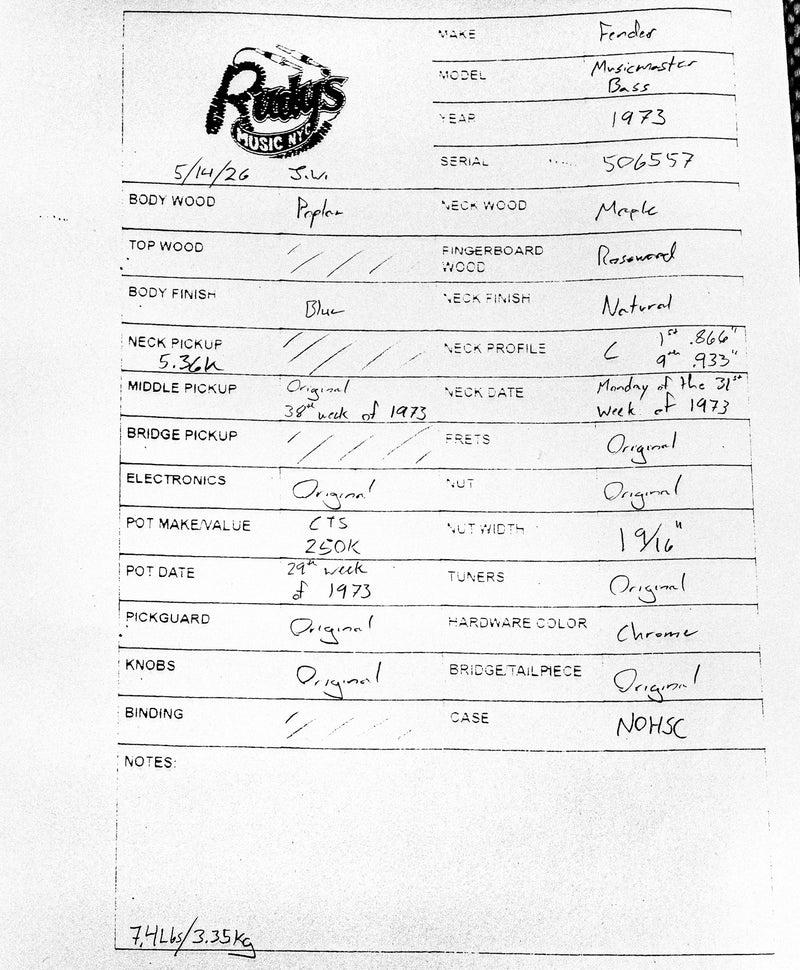 Rudy's
MUSIC NYC
5/14/26 J.W.
MAKE Fender
MODEL Musicmaster
Bass
YEAR 1973
SERIAL 506557
BODY WOOD Poplar NECK WOOD Maple
TOP WOOD FINGERBOARD WOOD Rosewood
BODY FINISH Blue NECK FINISH Natural
NECK PICKUP 5.36K NECK PROFILE C 1st .866"
9th .933"
MIDDLE PICKUP Original
38th week of 1973 NECK DATE Monday of the 31st
week of 1973
BRIDGE PICKUP FRETS Original
ELECTRONICS Original NUT Original
POT MAKE/VALUE CTS
250K NUT WIDTH 1 9/16"
POT DATE 29th week
of 1973 TUNERS Original
PICKGUARD Original HARDWARE COLOR Chrome
KNOBS Original BRIDGE/TAILPIECE Original
BINDING CASE NOHSC
NOTES:
7.4Lbs/3.35kg